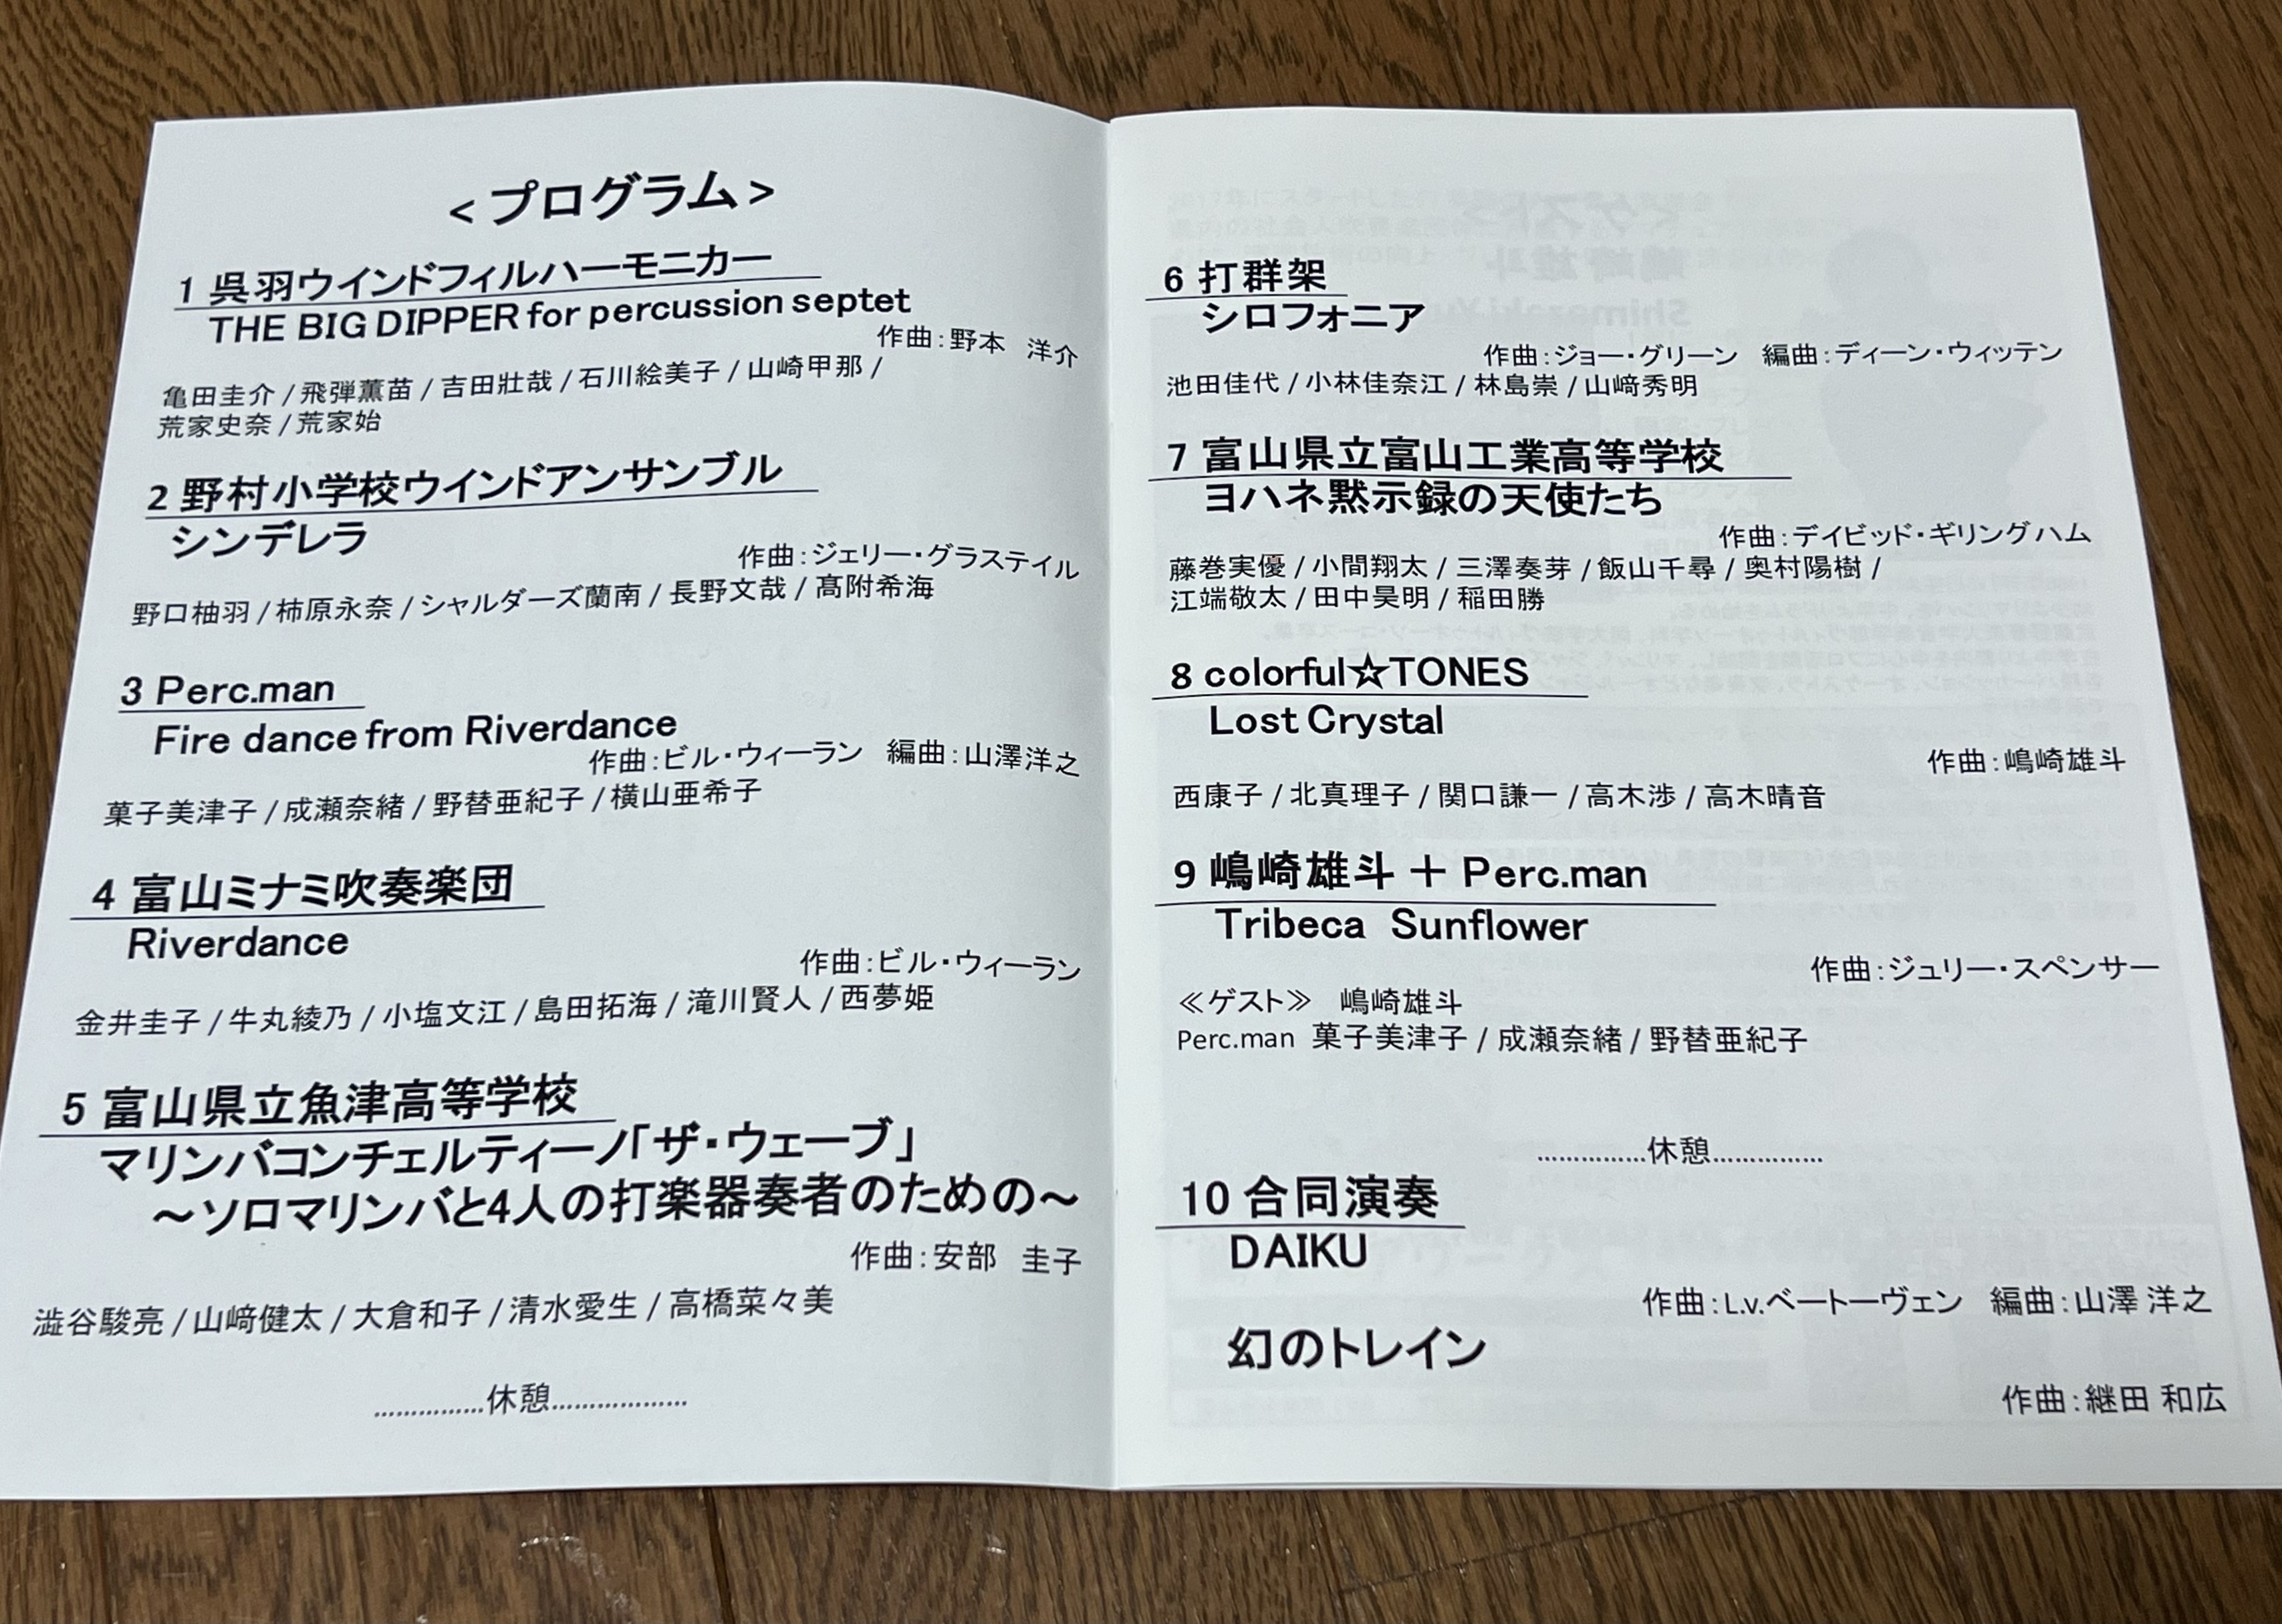 <プログラム>
1 呉羽ウインドフィルハーモニカー
THE BIG DIPPER for percussion septet
作曲:野本 洋介
亀田圭介/飛弾薫苗/吉田壯哉/石川絵美子/山崎甲那/
荒家史奈/荒家始
2 野村小学校ウインドアンサンブル
シンデレラ
作曲:ジェリー・グラステイル
野口柚羽/柿原永奈/シャルダーズ蘭南/長野文哉/髙附希海
3 Perc.man
Fire dance from Riverdance
作曲:ビル・ウィーラン 編曲:山澤洋之
菓子美津子/成瀬奈緒/野替亜紀子/横山亜希子
4 富山ミナミ吹奏楽団
Riverdance
作曲:ビル・ウィーラン
金井圭子/牛丸綾乃/小塩文江/島田拓海/滝川賢人/西夢姫
5 富山県立魚津高等学校
マリンバコンチェルティーノ「ザ・ウェーブ」
～ソロマリンバと4人の打楽器奏者のための～
作曲:安部 圭子
澁谷駿亮/山﨑健太/大倉和子/清水愛生/高橋菜々美
……………休憩………………
6 打群架
シロフォニア
作曲:ジョー・グリーン 編曲:ディーン・ウィッテン
池田佳代/小林佳奈江/林島崇/山﨑秀明
7 富山県立富山工業高等学校
ヨハネ黙示録の天使たち
作曲:デイビッド・ギリングハム
藤巻実優/小間翔太/三澤奏芽/飯山千尋/奥村陽樹/
江端敬太/田中昊明/稲田勝
8 colorful☆TONES
Lost Crystal
作曲:嶋崎雄斗
西康子/北真理子/関口謙一/高木渉/高木晴音
9 嶋崎雄斗＋Perc.man
Tribeca Sunflower
作曲:ジュリー・スペンサー
≪ゲスト≫ 嶋崎雄斗
Perc.man 菓子美津子/成瀬奈緒/野替亜紀子
……………休憩……………
10 合同演奏
DAIKU
作曲:L.v.ベートーヴェン 編曲:山澤 洋之
幻のトレイン
作曲:継田 和広